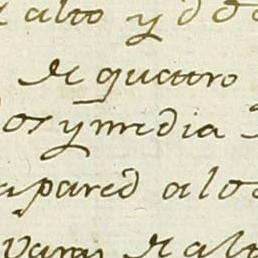 alto y do
de quattro
os y media
pared a lo
varas de alto